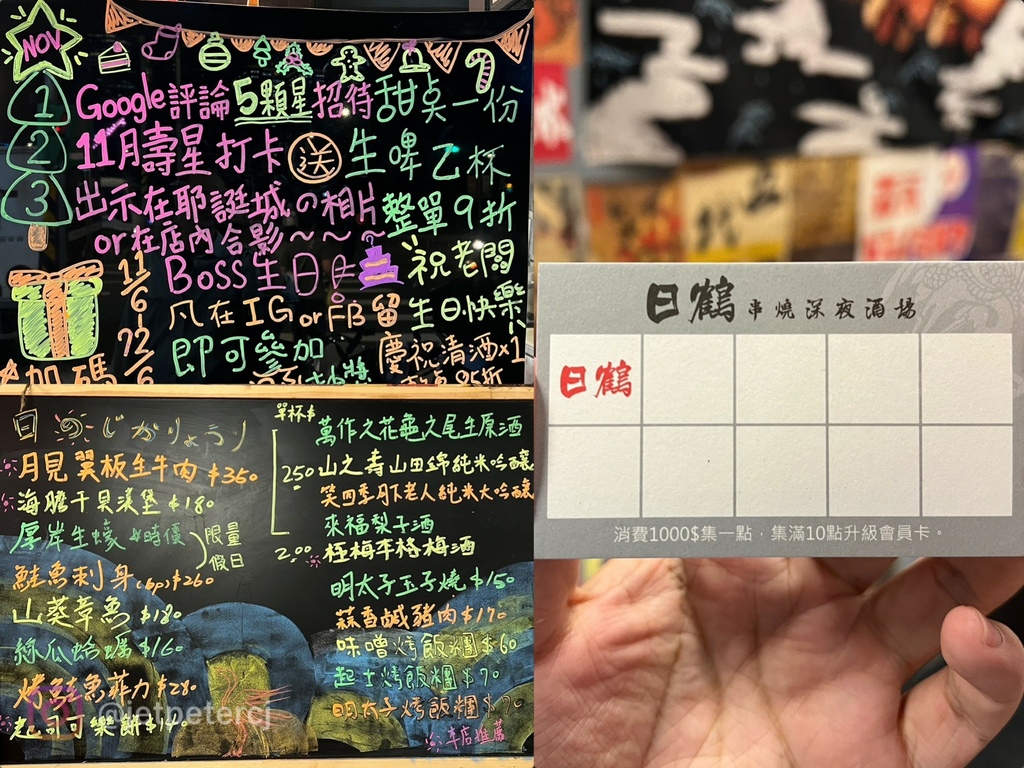 NOV
1 Google評論5顆星招待甜点一份
2 11月壽星打卡送生啤乙杯
3 出示在耶誕城の相片整單9折
or在店內合影~~~
11/6 BOSS生日 祝老闆
凡在IG or FB留生日快樂
即可參加 慶祝清酒x1
加碼
月見翼板生牛肉 $350
海膽干貝漢堡 $180
厚岸生蠔 $時價
限量
假日
鮭魚刺身(6p) $260
山葵章魚 $180
絲瓜蛤蠣 $160
烤鮭魚菲力 $280
起司可樂餅 $140
單杯$
萬作之花龜之尾生原酒
250 山之壽山田錦純米吟釀
笑四季月下老人純米大吟釀
來福梨子酒
200 梅酒
明太子玉子燒 $150
蒜香鹹豬肉 $170
味噌烤飯糰 $60
起士烤飯糰 $70
明太子烤飯糰 $70
本店推薦
@jetpetercj
日鶴 串燒深夜酒場
日鶴
消費1000$集一點，集滿10點升級會員卡。